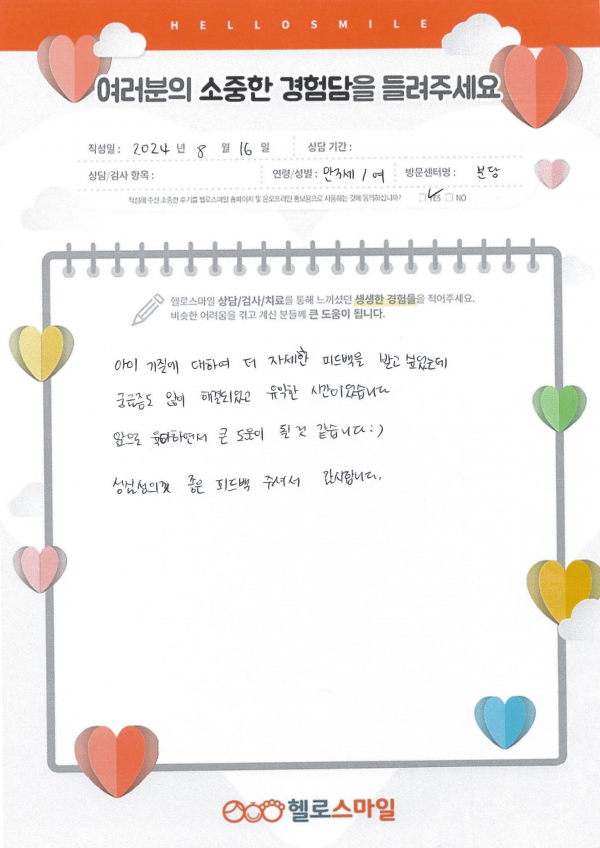 HELLOSMILE
여러분의 소중한 경험담을 들려주세요
작성일 : 2024 년 8 월 16 일 상담 기간 :
상담/검사 항목 : 연령/성별 : 만3세 / 여 방문센터명 : 분당
작성해 주신 소중한 후기를 헬로스마일 홈페이지 및 온오프라인 홍보용으로 사용하는 것에 동의하십니까? YES NO
헬로스마일 상담/검사/치료를 통해 느끼셨던 생생한 경험들을 적어주세요.
비슷한 어려움을 겪고 계신 분들께 큰 도움이 됩니다.
아이 기질에 대하여 더 자세한 피드백을 받고 싶었는데
궁금증도 많이 해결되었고 유익한 시간이었습니다
앞으로 육아하면서 큰 도움이 될 것 같습니다 :)
성심성의껏 좋은 피드백 주셔서 감사합니다.
헬로스마일